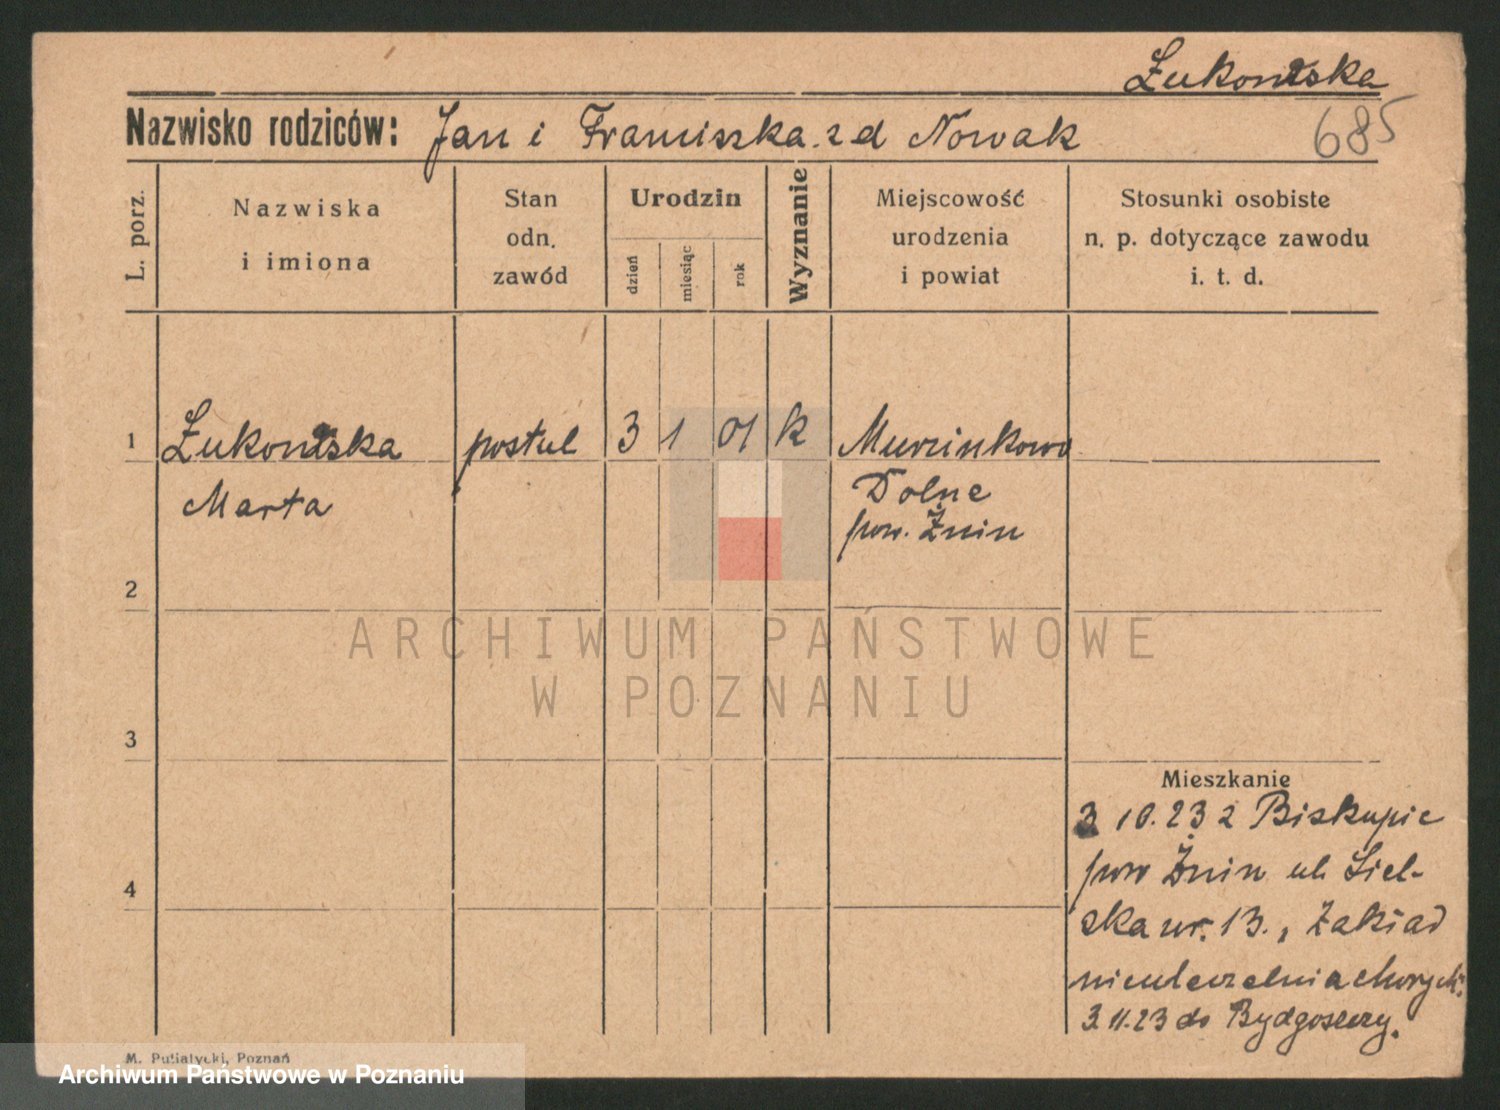 Żukowska
Nazwisko rodziców: Jan i Franciszka z d Nowak
685
L. porz.
Nazwiska
i imiona
Stan
odn.
zawód
Urodzin
dzień
miesiąc
rok
Wyznanie
Miejscowość
urodzenia
i powiat
Stosunki osobiste
n. p. dotyczące zawodu
i. t. d.
1 Żukowska postul 3 1 01 k Murzinkowo
Marta Dolne
pow. Żnin
2
ARCHIWUM PAŃSTWOWE
W POZNANIU
3
Mieszkanie
3 10.23 z Biskupic
pow Żnin ul. Siel-
ska nr. 13., Zakład
nieuleczalnia chorych.
3.11.23 do Bydgoszczy.
4
M. Putiatycki, Poznań
Archiwum Państwowe w Poznaniu